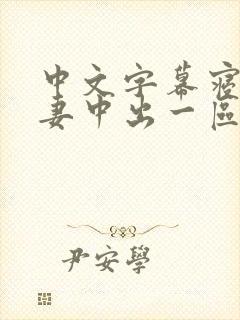 中文字幕寝
妻中出一區
尹安學